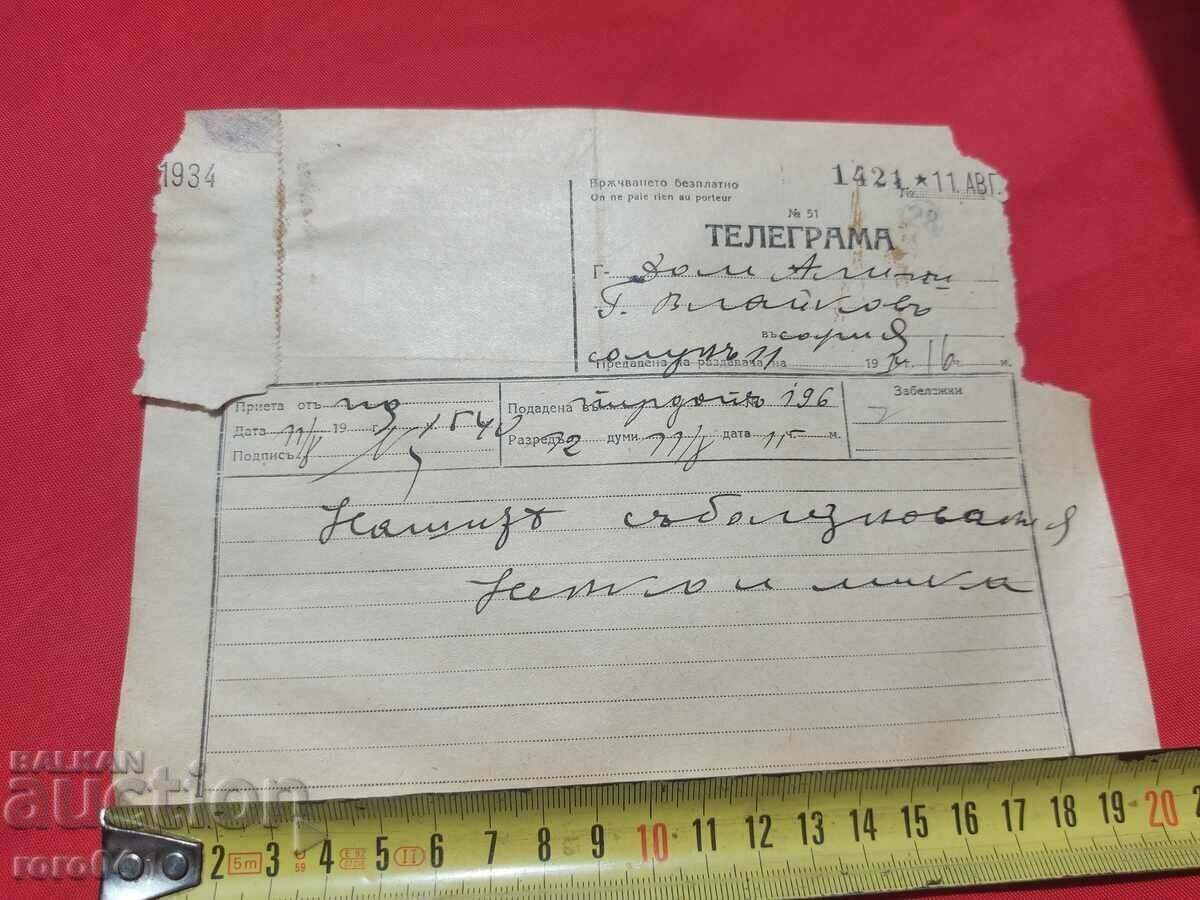 1934
Вржчването безплатно
On ne paie rien au porteur
1421 № ★ 11. АВГ.
№ 51
ТЕЛЕГРАМА
Г-
Г. Влайковъ
въ София
Солунъ 11
Предадена на раздавача на 193 г. 16 ч. м.
Приета отъ
Подадена въ Пирдопъ № 196
Забележки
Дата 11/8 193 г. 1540
Разредъ 12 думи 11/8 дата 11 ч. м.
Подписъ
Нашитѣ съболезнования
и мика
BALKAN
auction
roro
2 5m 3 59 4 5 II 6 7 8 9 10 11 12 13 14 15 16 17 18 19 20